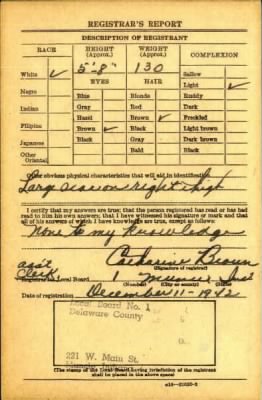 REGISTRAR'S REPORT
DESCRIPTION OF REGISTRANT
RACE HEIGHT (Approx.) WEIGHT (Approx.) COMPLEXION
White ✓ 5'-8" 130 Sallow
EYES HAIR Light ✓
Negro Blue Blonde Ruddy
Indian Gray Red Dark
Hazel Brown ✓ Freckled
Filipino Brown ✓ Black Light brown
Japanese Black Gray Dark brown
Other Oriental Bald Black
Other obvious physical characteristics that will aid in identification
Large scar on right thigh
I certify that my answers are true; that the person registered has read or has had
read to him his own answers; that I have witnessed his signature or mark and that
all of his answers of which I have knowledge are true, except as follows:
None to my knowledge
Catharine Brown
(Signature of registrar)
Registrar for Local Board 1 Muncie Ind
(Number) (City or county) (State)
Date of registration December 11-1942
Local Board No. 1
Delaware County
221 W. Main St.
Muncie, Indiana
(The stamp of the Local Board having jurisdiction of the registrant
shall be placed in the above space)